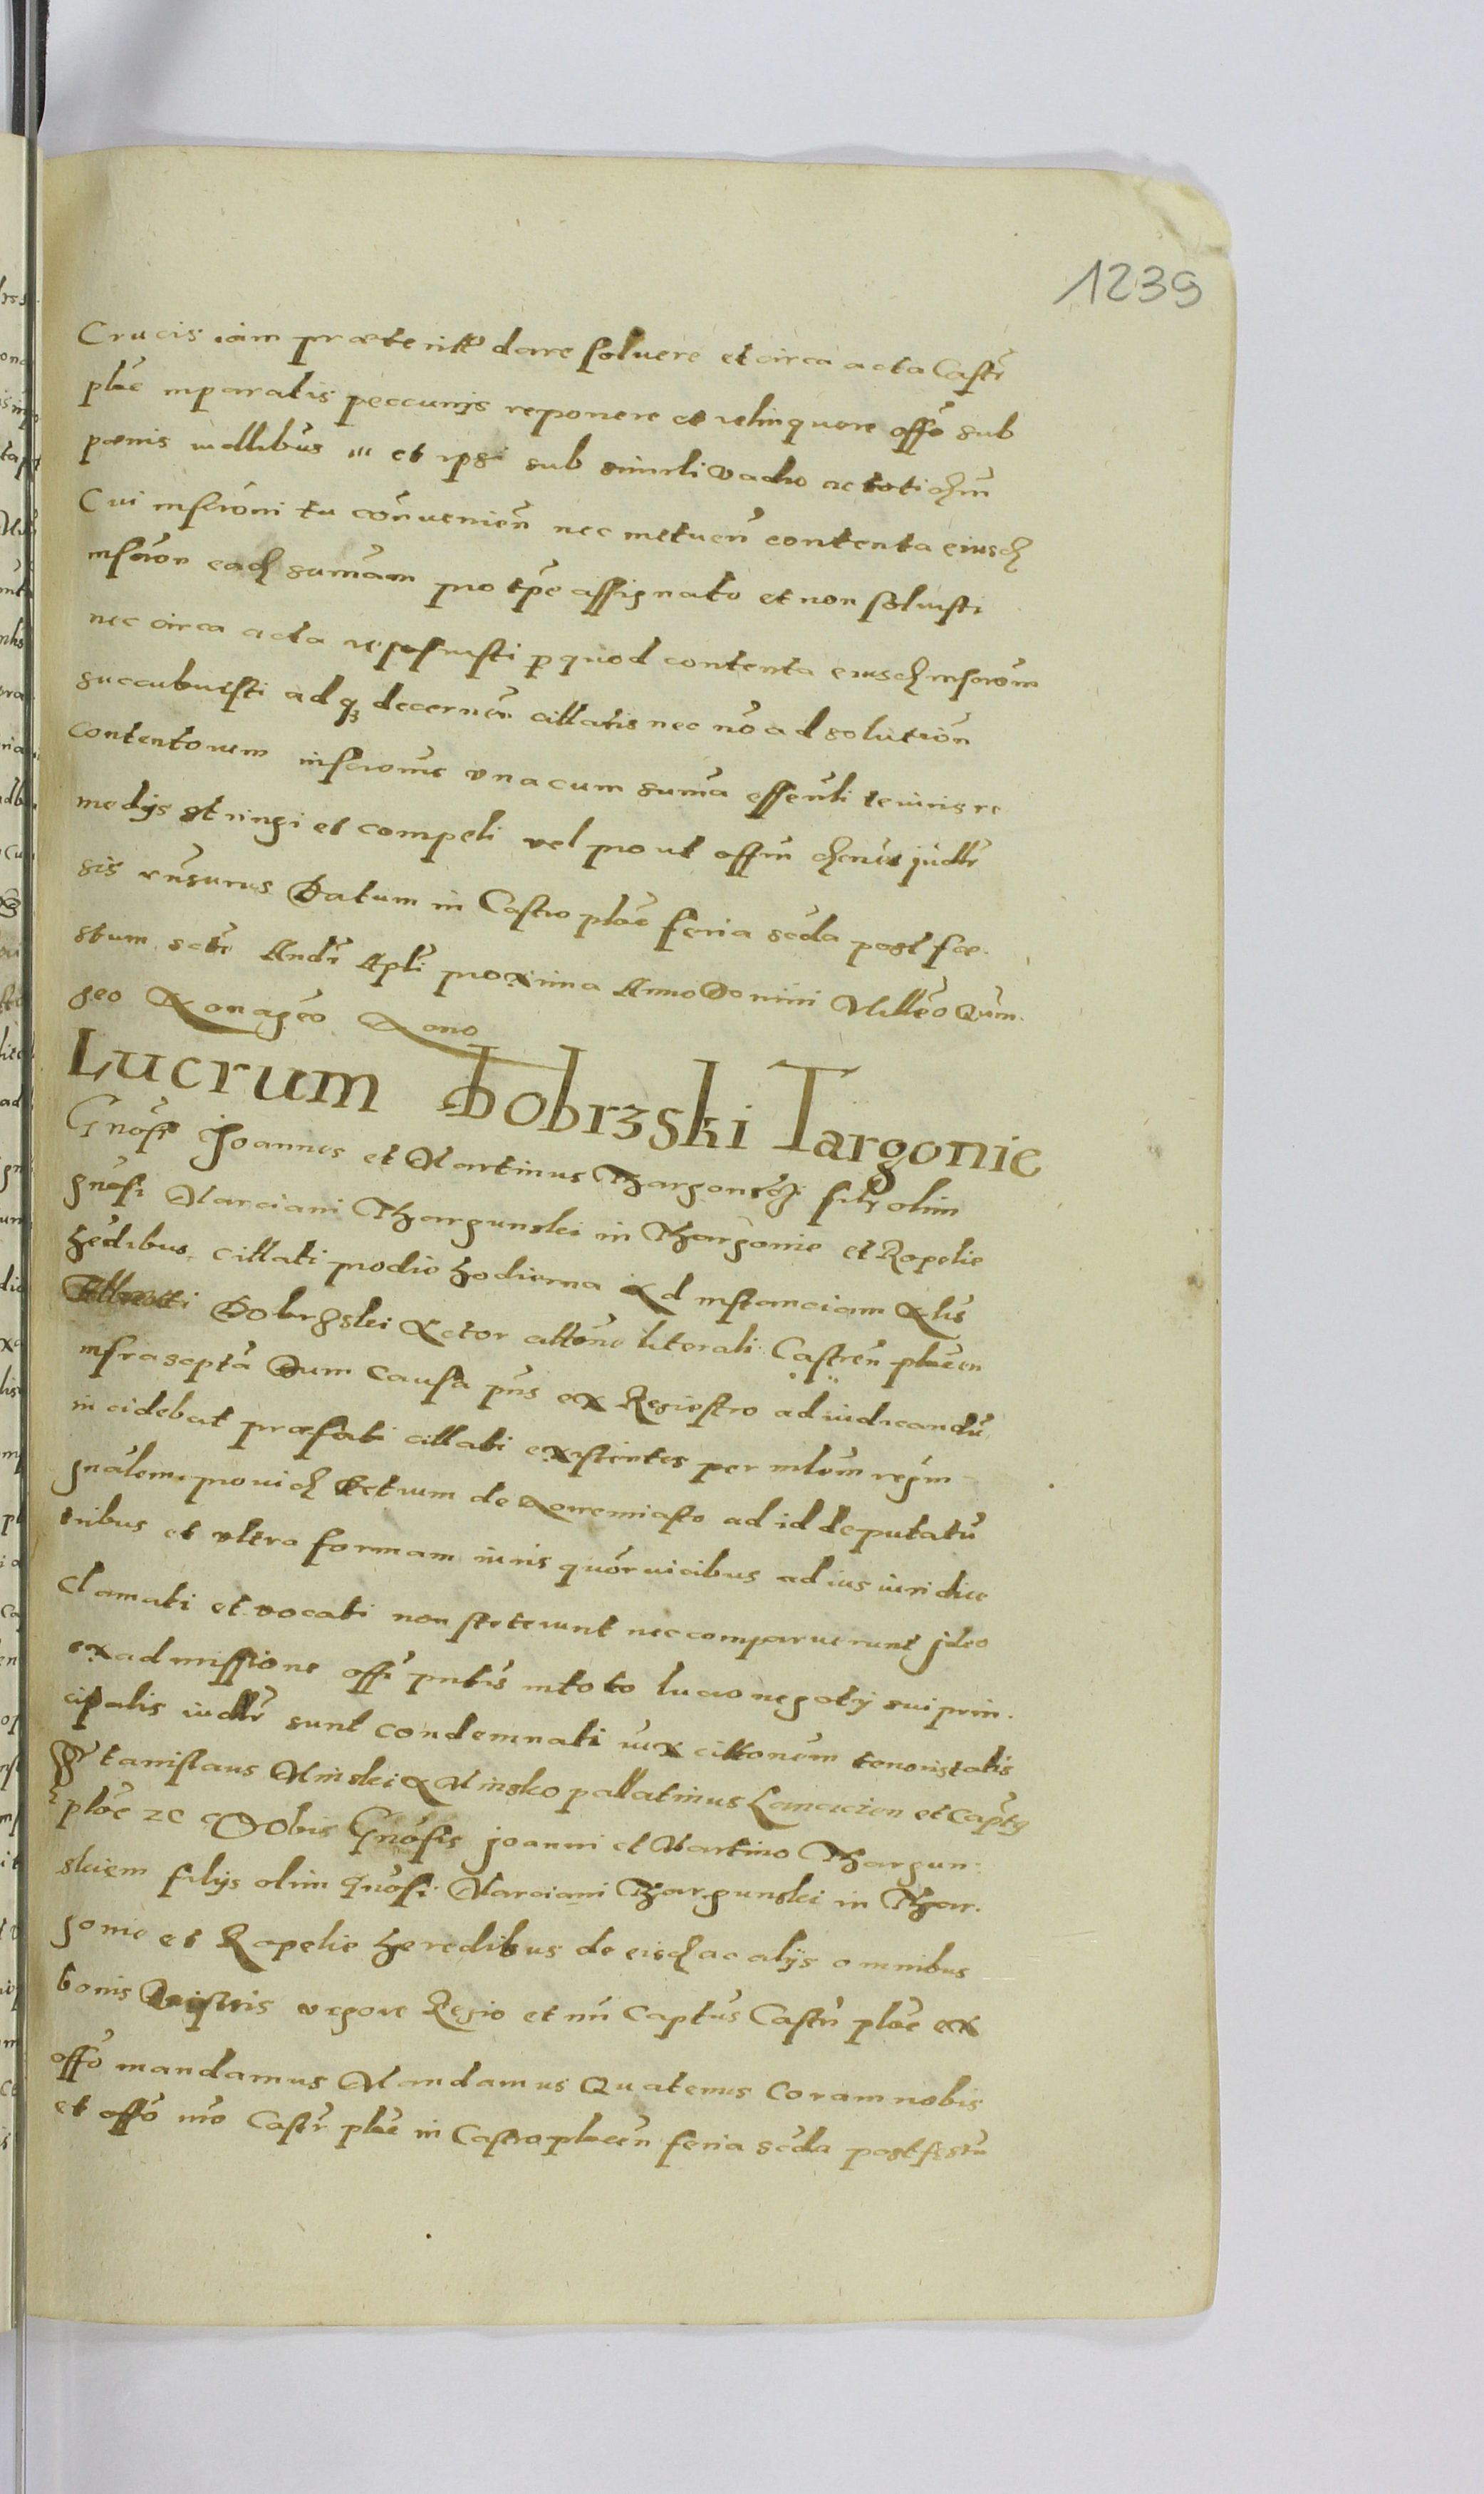 1239
Crucis iam præteriti dare soluere et circa acta Castri
ploc inparatis peccunijs reponere et relinquere offo sub
pænis iudlibus et ipsi sub simili vadio ac toti dhm
Cui inscrioni tu conuenien nec metuen contenta eiusd
inscrion eand sumam pro tpe assignato et non soluisti
nec circa acta reposuisti p quod contenta eiusd inscrioni
succubuisti ad q decernen cittatis nec no ad solution
contentorum inscrionis vna cum suma essenli iuris re
medijs stringi et compeli vel prout offm iudlr
sis rnsurus Datum in Castro ploc feria scda post fæ
stum scti Andr Apli proxima Anno Domini Milleo Quin
geo Nonageo Nono
Lucrum Dobrzski Targonie
Gnosi Joannes et Martinus Thargonski filij olim
gnosi Marciani Thargunski in Thargonie et Ropelie
hedibus cittati pro die hodierna Ad instanciam Nlis
Dobrzski Actor cittone literali Castren plocen
infrascpta Dum Causa pns ex Regiestro ad iudicandu
incidebat præfati cittati existentes per mlem regin
gnalem prouid Petrum de ad id deputatu
tribus et vltra formam iuris quor vicibus ad ius iuridice
clamati et vocati non steterunt nec comparuerunt ideo
ex admissione offi pntis in toto lucro negotij sui prin
cipalis iudlr sunt condemnati iux cittonem tenoris talis
Stanislaus Minski A Minsko pallatinus Lancicien et Captus
ploc zc Vobis Gnosis Joanni et Martino Thargun
skiem filijs olim Gnosi Marciani Thargunski in Thar
gonie et Rapelie heredibus de eisd ac alijs omnibus
bonis vestris vigore Regio et nri Captus Castri ploc ex
offo mandamus Mandamus Quatenus Coram nobis
et offo nro Castr ploc in Castro plocen feria scda post festu